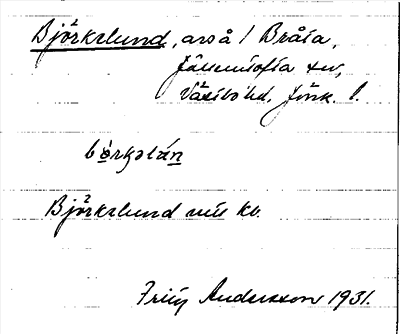 Björkelund, avs å / Bråta,
Jällundtofta sn,
Västbo hd, Jönk. l.
bö̀rkəlún
Björkelund mil kb.
Frity Andersson 1931.